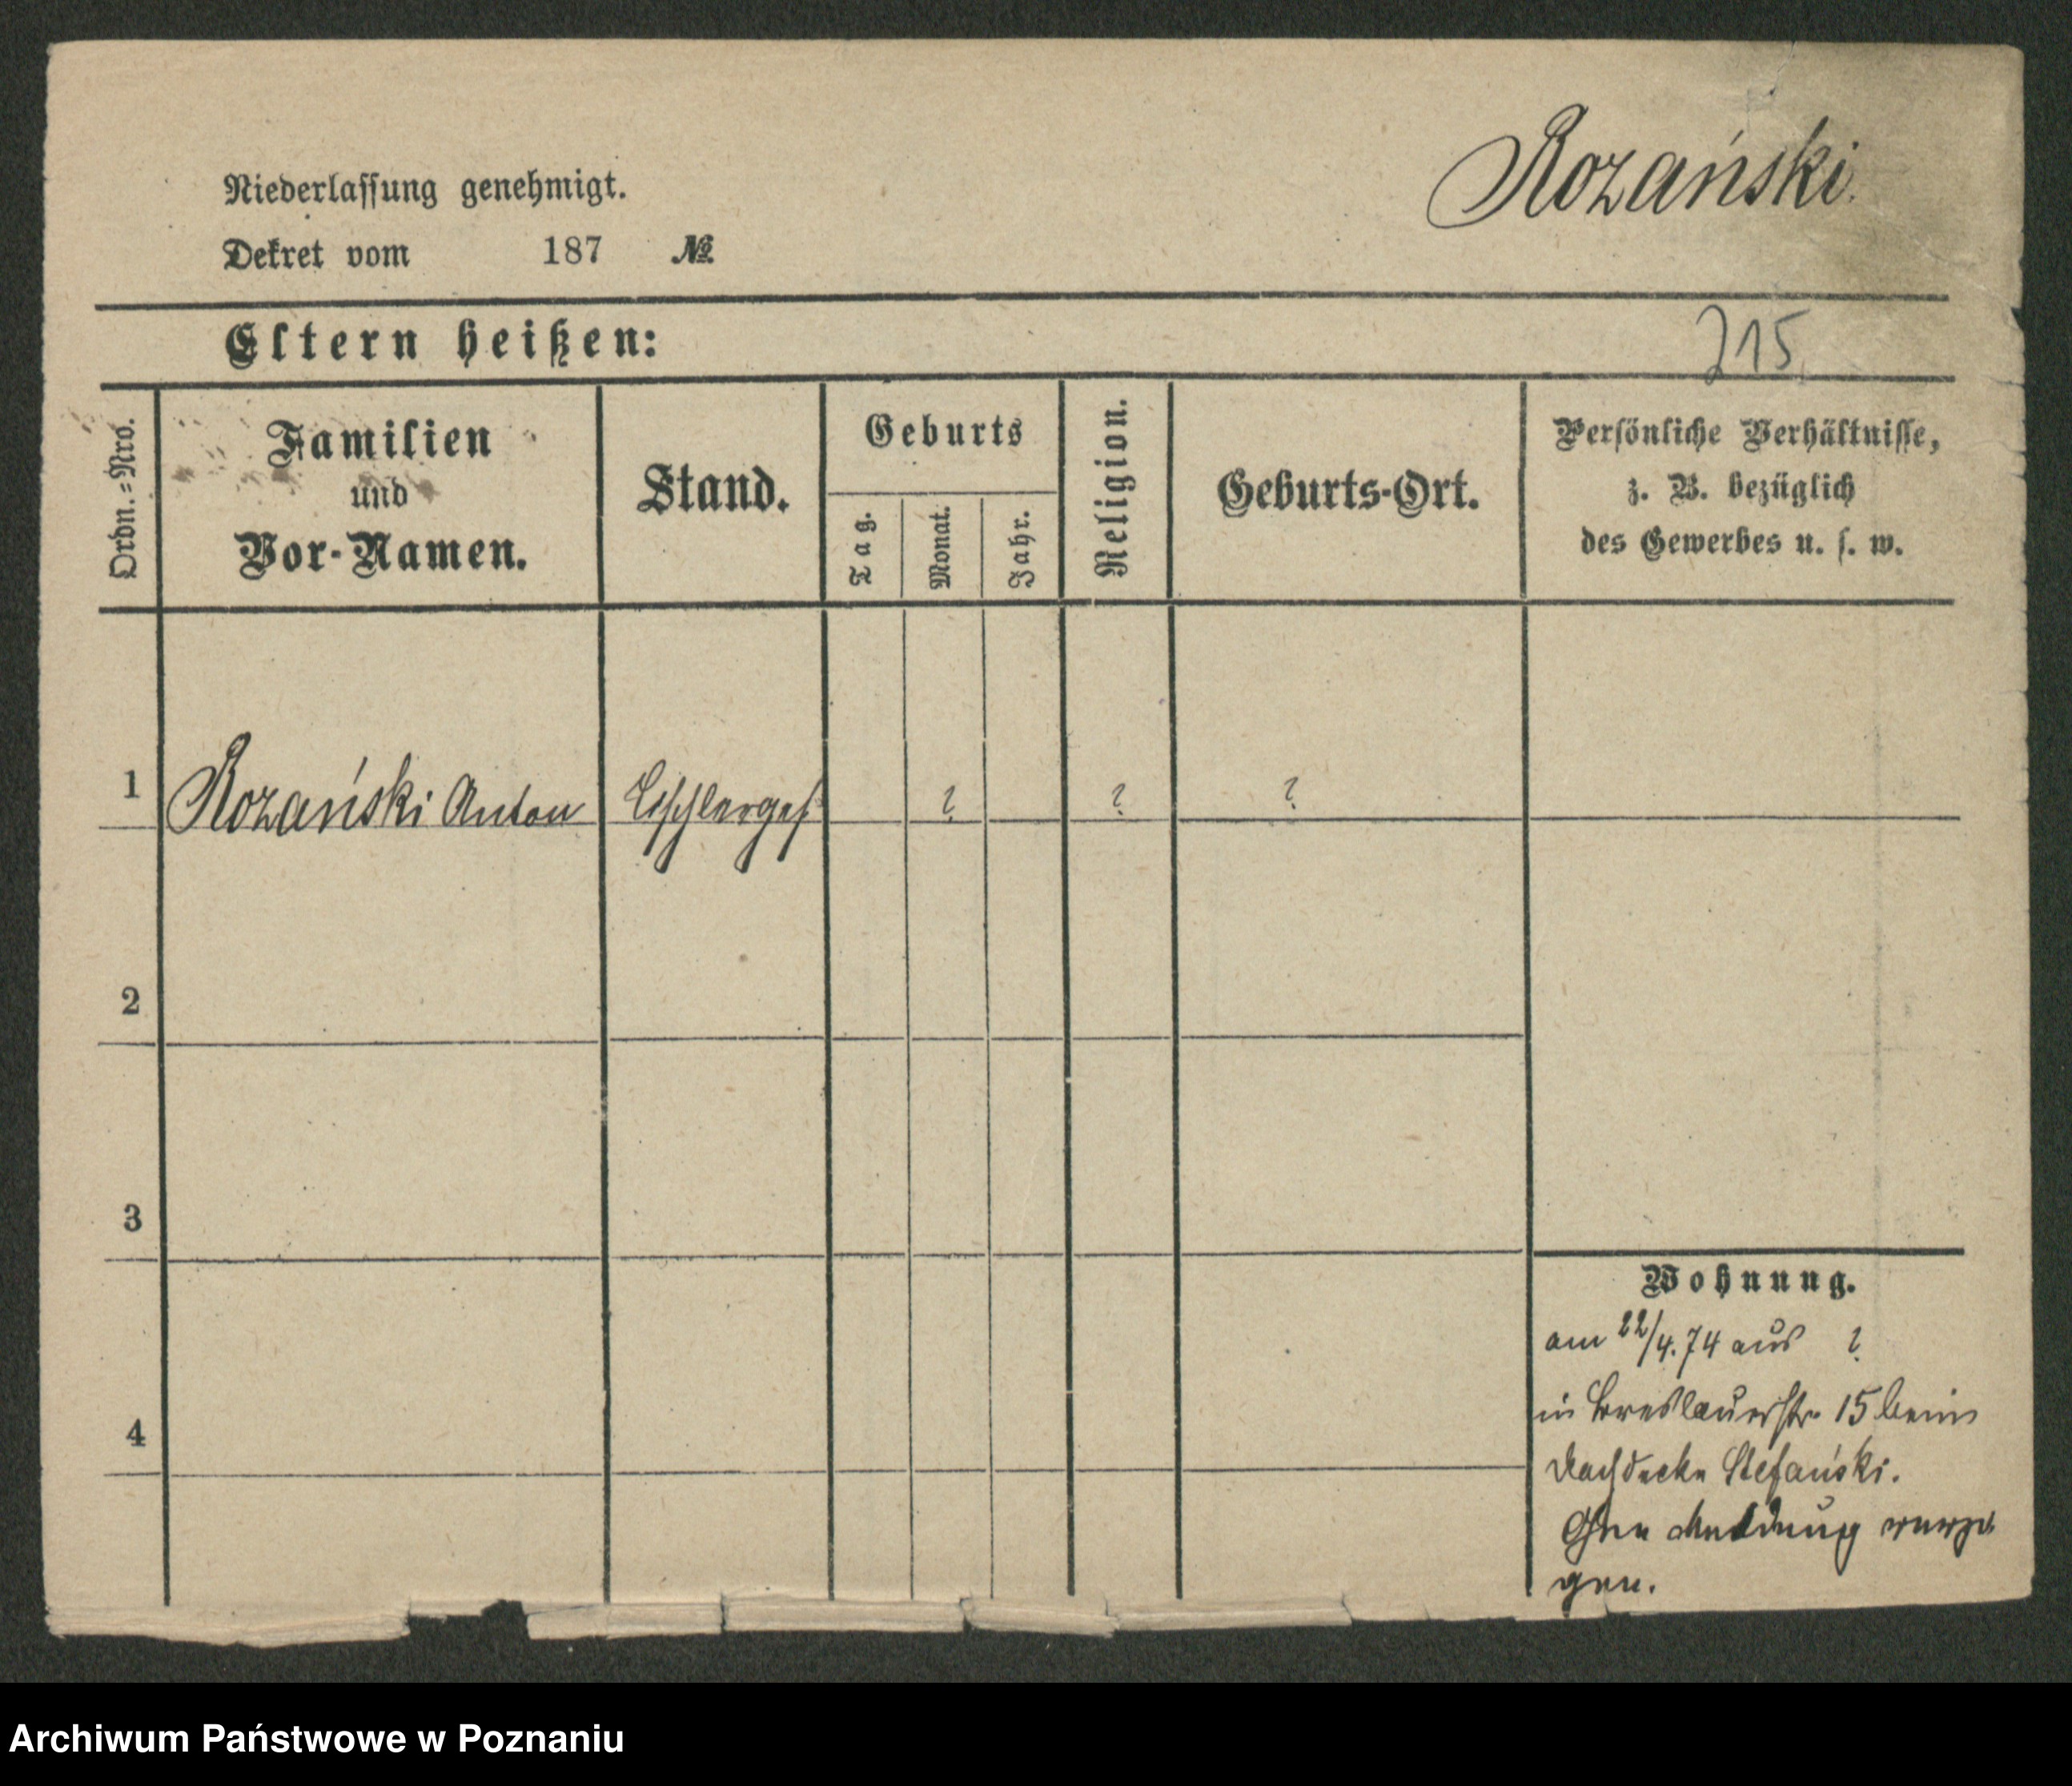 Rozański.
Niederlassung genehmigt.
Dekret vom 187 №
Eltern heißen:
215
Ordn.=Nro.
Familien
und
Vor-Namen.
Stand.
Geburts
Tag.
Monat.
Jahr.
Religion.
Geburts-Ort.
Persönliche Verhältnisse,
z. B. bezüglich
des Gewerbes u. s. w.
1 Rozański Anton Tischlerges ? ? ?
2
3
4
Wohnung.
am 22/4.74 aus ?
in Breslauerstr. 15 beim
Dachdecker Stefański.
Ohne Meldung verzo
gen.
Archiwum Państwowe w Poznaniu